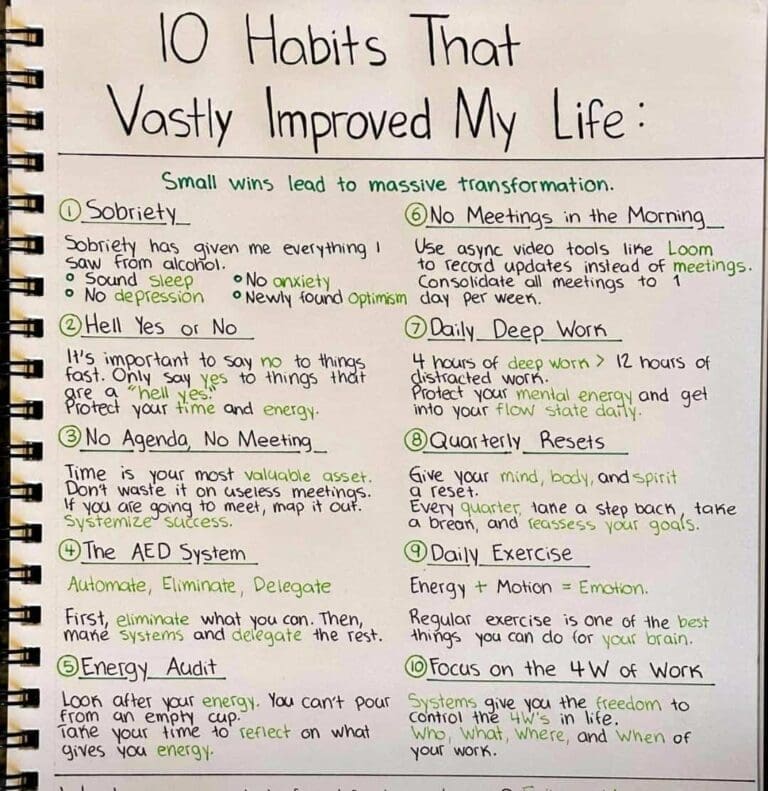 10 Habits That
Vastly Improved My Life:
Small wins lead to massive transformation.
① Sobriety
Sobriety has given me everything I
saw from alcohol.
° Sound sleep
° No anxiety
° No depression
° Newly found optimism
② Hell Yes or No
It's important to say no to things
fast. Only say yes to things that
are a "hell yes."
Protect your time and energy.
③ No Agenda, No Meeting
Time is your most valuable asset.
Don't waste it on useless meetings.
If you are going to meet, map it out.
Systemize success.
④ The AED System
Automate, Eliminate, Delegate
First, eliminate what you can. Then,
make systems and delegate the rest.
⑤ Energy Audit
Look after your energy. You can't pour
from an empty cup.
Take your time to reflect on what
gives you energy.
⑥ No Meetings in the Morning
Use async video tools like Loom
to record updates instead of meetings.
Consolidate all meetings to 1
day per week.
⑦ Daily Deep Work
4 hours of deep work > 12 hours of
distracted work.
Protect your mental energy and get
into your flow state daily.
⑧ Quarterly Resets
Give your mind, body, and spirit
a reset.
Every quarter, take a step back, take
a break, and reassess your goals.
⑨ Daily Exercise
Energy + Motion = Emotion.
Regular exercise is one of the best
things you can do for your brain.
⑩ Focus on the 4W of Work
Systems give you the freedom to
control the 4W's in life.
Who, what, where, and when of
your work.